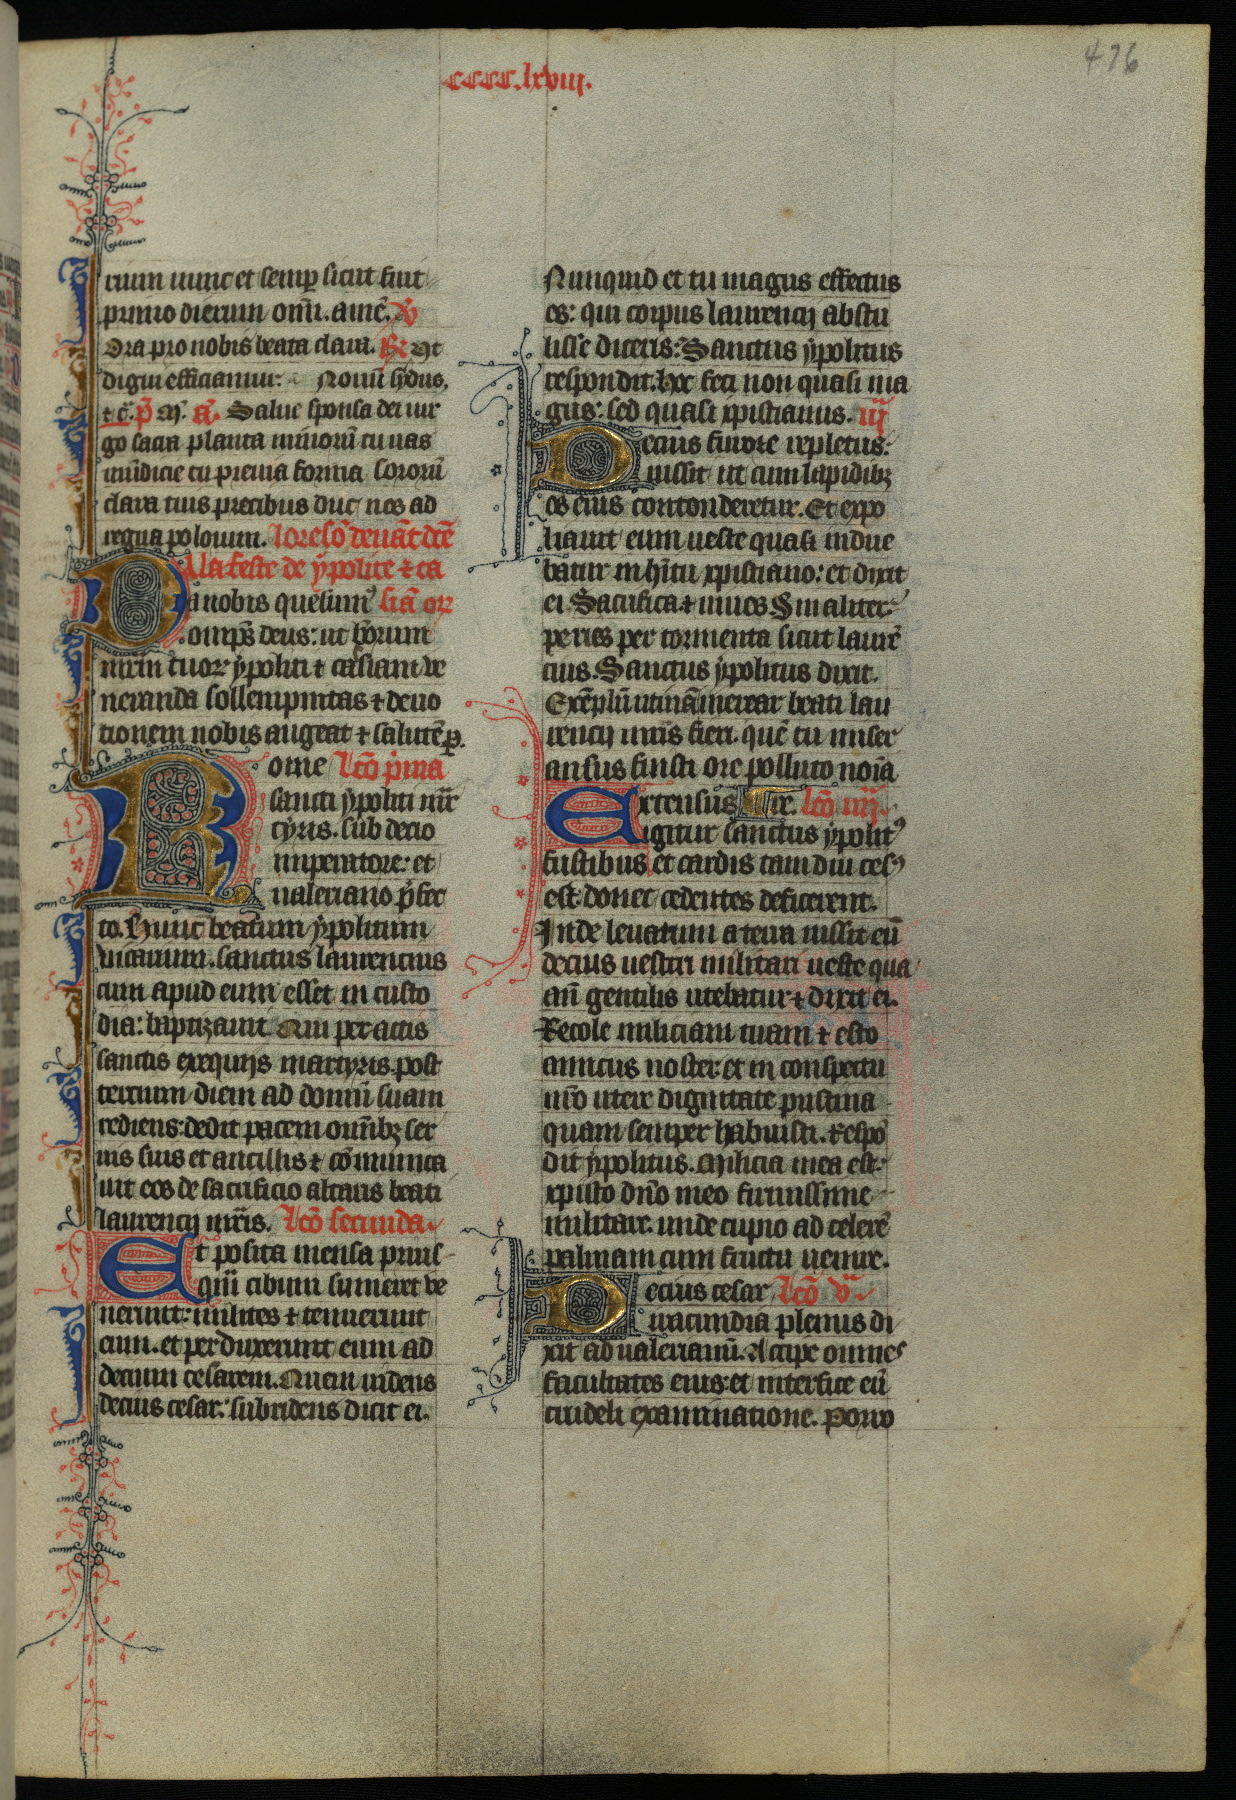 cccc.lxviii.
476
rum nunc et semp sicut fuit
primo dierum omi. ame. V
Ora pro nobis beata clara. R Ut
digni efficiamur. Nouu sydus,
⁊ c. p M. a. Salue sponsa dei uir
go sacra planta minoru tu uas
mudicie tu preuia forma sororu
clara tuis precibus duc nos ad
regna polorum.
A la feste de ypolite ⁊ ca
Da nobis quesum⁹ sia or
omps deus: ut brorum
mrm tuor ypoliti ⁊ cassiani ve
neranda sollempnitas ⁊ deuo
tionem nobis augeat ⁊ salute. p.
Rome Lco pma
sancti ypoliti mr
tyris. sub decio
imperatore: et
ualeriano pfec
to. Hunc beatum ypolitum
uicarium. sanctus laurencius
cum apud eum esset in custo
dia: baptizauit. Qui peractis
sanctis exequijs martyris. post
tercium diem ad domu suam
rediens: dedit pacem omibz ser
uis suis et ancillis ⁊ comunica
uit eos de sacrificio altaris beati
laurencij mris. Lco secunda.
Et posita mensa prius
qm cibum sumeret ve
nerunt: milites ⁊ tenuerunt
eum. et perduxerunt eum ad
decium cesarem. Quem uidens
decius cesar: subridens dicit ei.
Nunquid et tu magus effectus
es: qui corpus laurencij abstu
lisse diceris: Sanctus ypolitus
respondit. hec feci non quasi ma
gus: sed quasi xpistianus. iij
Decius furore repletus:
iussit ut cum lapidibz
os eius contonderetur. Et expo
liauit eum ueste quasi indue
batur in hitu xpistiano: et dixit
ei. Sacrifica ⁊ uiues Sin aliter:
peries per tormenta sicut laure
cius. Sanctus ypolitus dixit.
Exeplu utina merear beati lau
rencij mris fieri. que tu miser
ausus fuisti ore polluto noia
Extensus re. Lco iiij.
igitur sanctus ypolit⁹
fustibus et cardis tam diu ces⁹
est. donec cedentes deficerent.
Inde leuatum a terra iussit eu
decius uestiri militari ueste qua
an gentilis utebatur ⁊ dixit ei.
Recole miliciam tuam ⁊ esto
amicus noster: et in conspectu
nro utere dignitate pristina
quam semper habuisti. Respo
dit ypolitus. Milicia mea est:
xpisto dno meo firmissime
militare. unde cupio ad celere
palmam cum fructu uenire.
Decius cesar Lco v.
iracundia plenus di
xit ad ualerianu. Accipe omnes
facultates eius: et interfice eu
crudeli examinatione. Porro